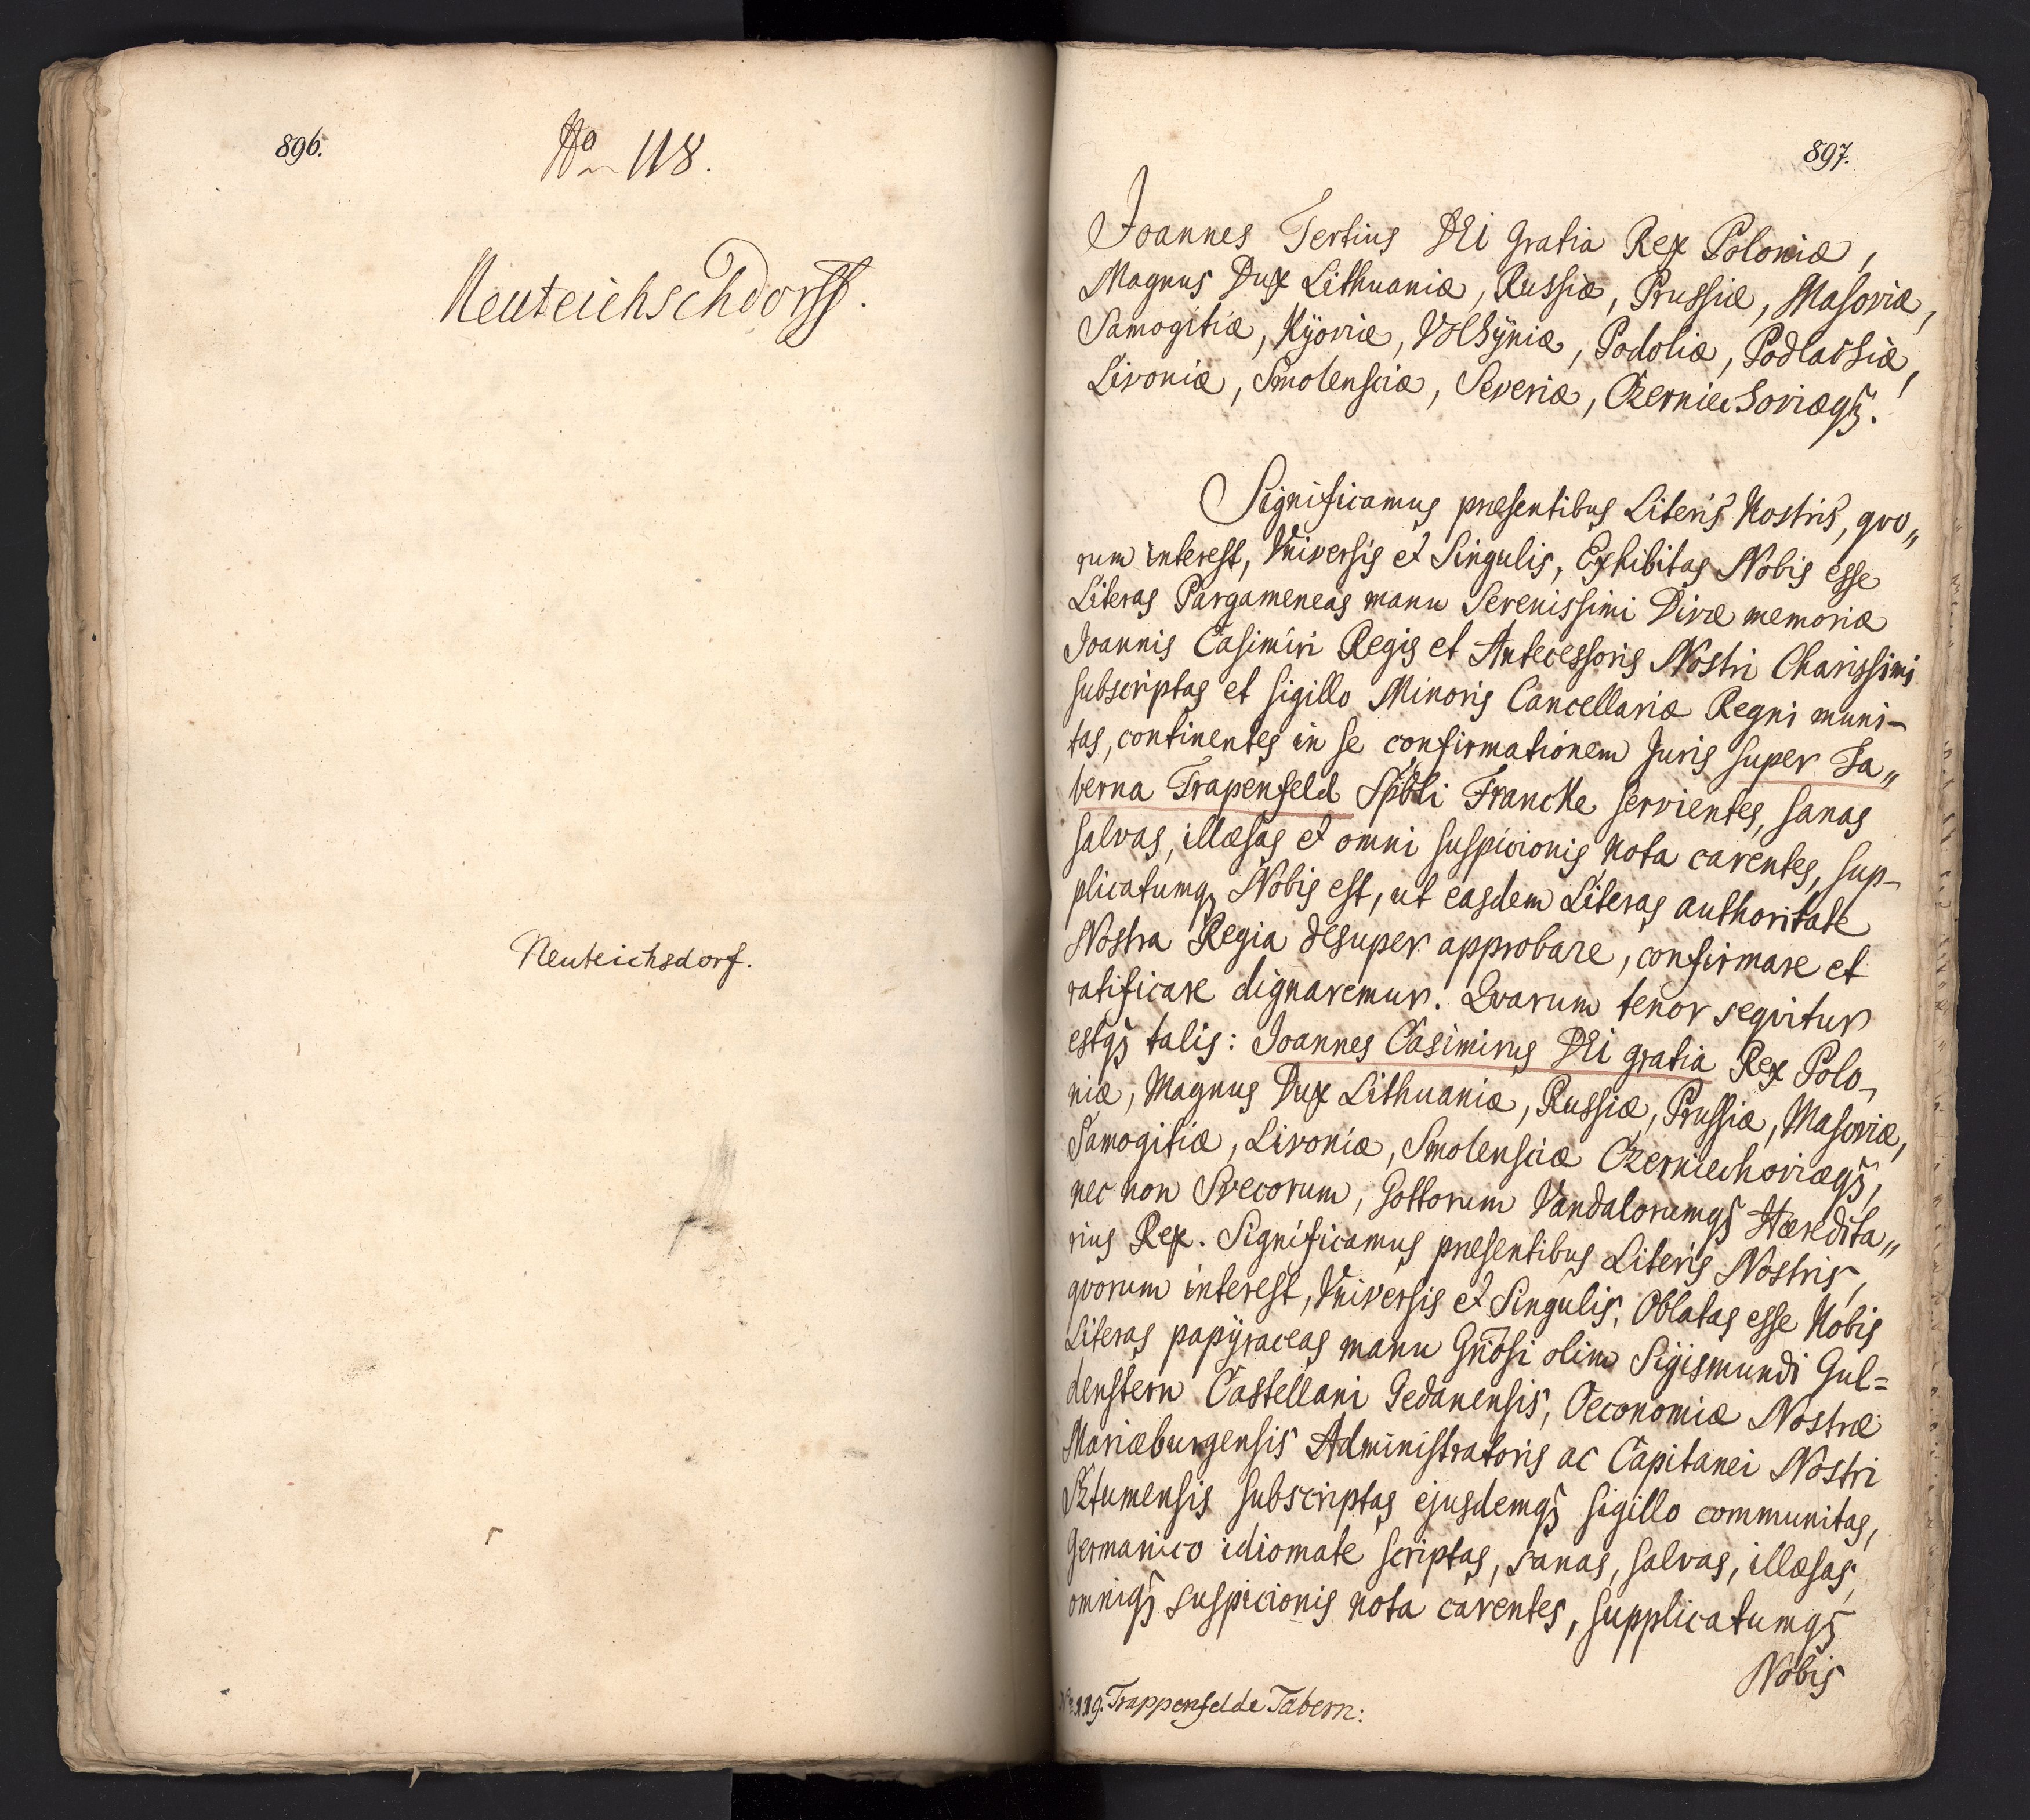 896.
No 118.
Neuteichschdorff.
Neuteichsdorf.
897.
Joannes Tertius DEi gratia Rex Poloniæ,
Magnus Dux Lithuaniæ, Russiæ, Prussiæ, Masoviæ,
Samogitiæ, Kÿoviæ, Volhÿniæ, Podoliæ, Podlachiæ,
Livoniæ, Smolensciæ, Severiæ, Czerniechoviæq3.
Significamus præsentibus Literis Nostris, qvo„
rum interest, Vniversis et Singulis, Exhibitas Nobis esse
Literas Pargameneas manu Serenissimi Divæ memoriæ
Joannis Casimiri Regis et Antecessoris Nostri Charissimi
subscriptas et sigillo Minoris Cancellariæ Regni muni-
tas, continentes in se confirmationem Juris super Ta„
berna Trapenfeld Francke servientes, sanas
salvas, illæsas et omni suspicionis nota carentes, sup-
plicatumq3 Nobis est, ut easdem Literas authoritate
Nostra Regia desuper approbare, confirmare et
ratificare dignaremur. Qvarum tenor seqvitur
estq3 talis: Joannes Casimirus DEi gratia Rex Polo-
niæ, Magnus Dux Lithuaniæ, Russiæ, Prussiæ, Masoviæ,
Samogitiæ, Livoniæ, Smolensciæ Czerniechoviæq3,
nec non Svecorum, Gottorum Vandalorumq3 Hæredita„
rius Rex. Significamus præsentibus Literis Nostris,
qvorum interest, Vniversis et Singulis, Oblatas esse Nobis
Literas papÿraceas manu Gnosi olim Sigismundi Gul=
denstern Castellani Gedanensis, Oeconomiæ Nostræ
Mariæburgensis Administratoris ac Capitanei Nostri
Sztumensis subscriptas ejusdemq3 sigillo communitas,
Germanico idiomate scriptas, sanas, salvas, illæsas,
omniq3 suspicionis nota carentes, supplicatumq3
Nobis
No. 119. Trappenfelde Tabern: